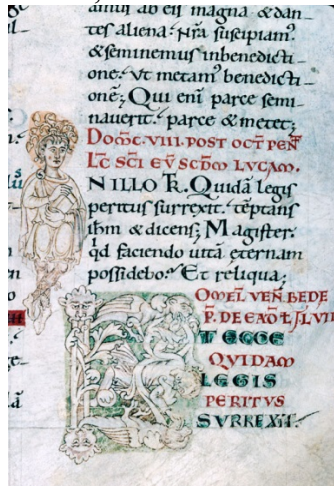 simul ab eis magna & dan-
tes aliena. Nr̄a suscipiam'
& seminemus in benedicti-
one. Vt metam' benedicti-
one; Qui eni parce semi-
nauerit. parce & metet;
DOM̄C. VIII. POST OCT̄ PEN̄
LC̄ SC̄I EV̄ SCD̄M LVCAM.
N ILLO T̄R. Quidā legis
peritus surrexit. tēptans
ih̄m & dicens; Magister.
qd faciendo uitā eternam
possidebo? Et reliqua;
OMEL VEN̄ BEDE
P̄. DE EADE L
T ECCE
QVIDAM
LEGIS
PERITVS
SVRREXIT.